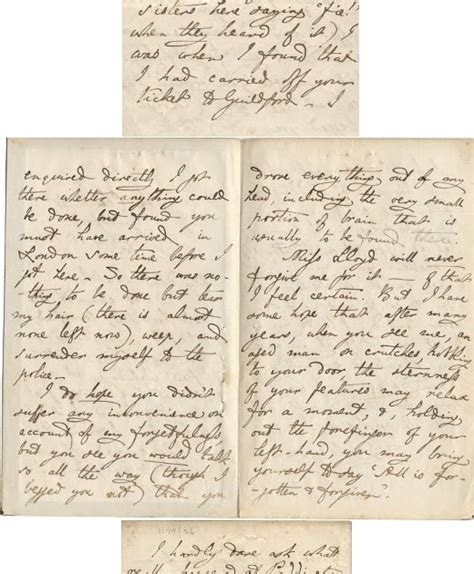 sisters here saying "fie!"
when they heard of it) I
was when I found that
I had carried off your
ticket to Guildford - I
enquired directly I got
there whether anything could
be done, but found you
must have arrived in
London some time before I
got here. So there was no-
thing to be done but tear
my hair (there is almost
none left now), weep, and
surrender myself to the
police.
I do hope you didn't
suffer any inconvenience on
account of my forgetfulness
but you see you would talk
so all the way (though I
begged you not) that you
drove everything out of my
head, including the very small
portion of brain that is
usually to be found there.
Miss Lloyd will never
forgive me for it - of that
I feel certain. But I have
some hope that after many
years, when you see me, an
aged man on crutches, hobbling
to your door, the sternness
of your features may relax
for a moment, & holding
out the forefinger of your
left-hand, you may bring
yourself to say "All is for-
gotten & forgiven".
1129/26
I hardly dare ask what
happened at Paddington